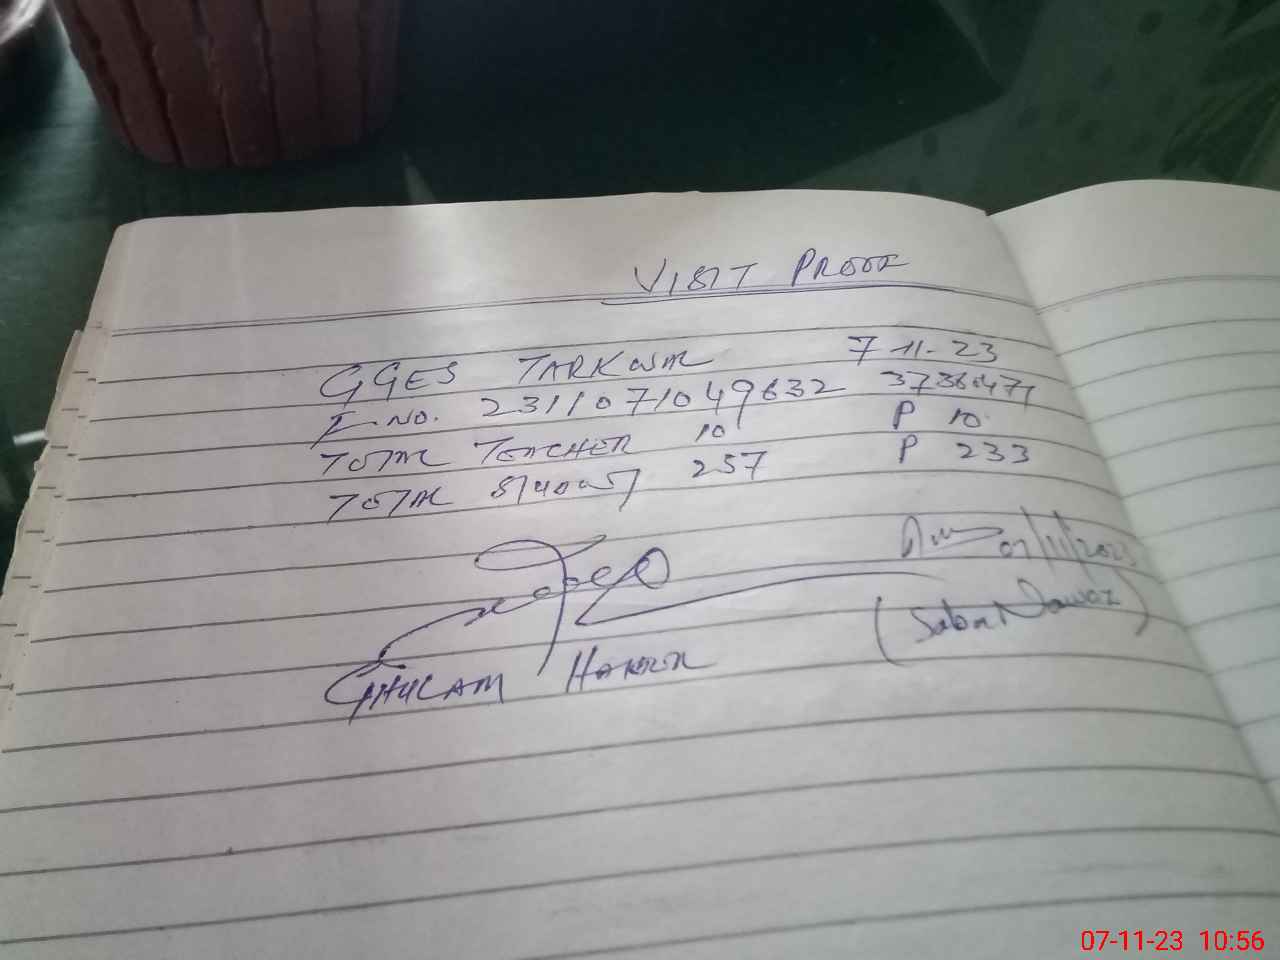 VISIT PROOF
GGES TARKWAL 7-11-23
I-NO. 2311071049632
TOTAL TEACHER 10 P 10
TOTAL STUDENT 257 P 233
07/11/2023
(Saba Nawaz)
GHULAM
07-11-23 10:56